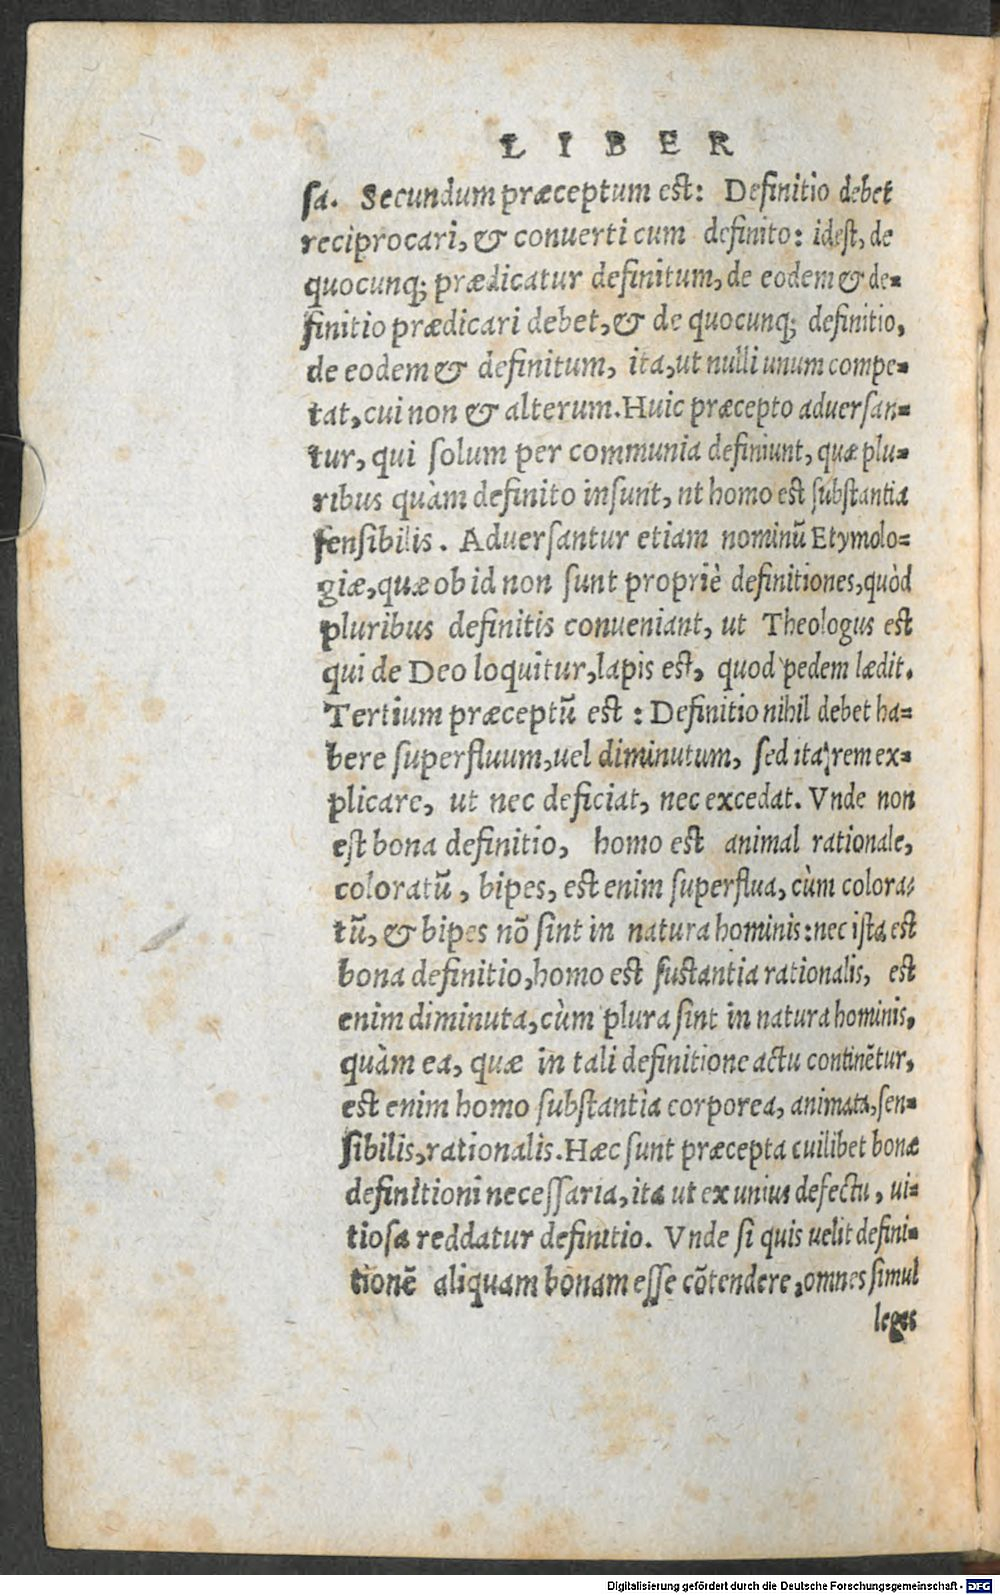 LIBER
sa. Secundum præceptum est: Definitio debet
reciprocari, & conuerti cum definito: idest, de
quocunq; prædicatur definitum, de eodem & de-
finitio prædicari debet, & de quocunq; definitio,
de eodem & definitum, ita, ut nulli unum compe-
tat, cui non & alterum. Huic præcepto aduersan-
tur, qui solum per communia definiunt, quæ plu-
ribus quàm definito insunt, nt homo est substantia
sensibilis. Aduersantur etiam nominũ Etymolo-
giæ, quæ ob id non sunt propriè definitiones, quòd
pluribus definitis conueniant, ut Theologus est
qui de Deo loquitur, lapis est, quod pedem lædit.
Tertium præceptũ est: Definitio nihil debet ha-
bere superfluum, uel diminutum, sed ita rem ex-
plicare, ut nec deficiat, nec excedat. Vnde non
est bona definitio, homo est animal rationale,
coloratũ, bipes, est enim superflua, cùm colora-
tũ, & bipes nõ sint in natura hominis: nec ista est
bona definitio, homo est sustantia rationalis, est
enim diminuta, cùm plura sint in natura hominis,
quàm ea, quæ in tali definitione actu continẽtur,
est enim homo substantia corporea, animata, sen-
sibilis, rationalis. Hæc sunt præcepta cuilibet bonæ
definitioni necessaria, ita ut ex unius defectu, ui-
tiosa reddatur definitio. Vnde si quis uelit defini-
tionẽ aliquam bonam esse cõtendere, omnes simul
leges
Digitalisierung gefördert durch die Deutsche Forschungsgemeinschaft - DFG